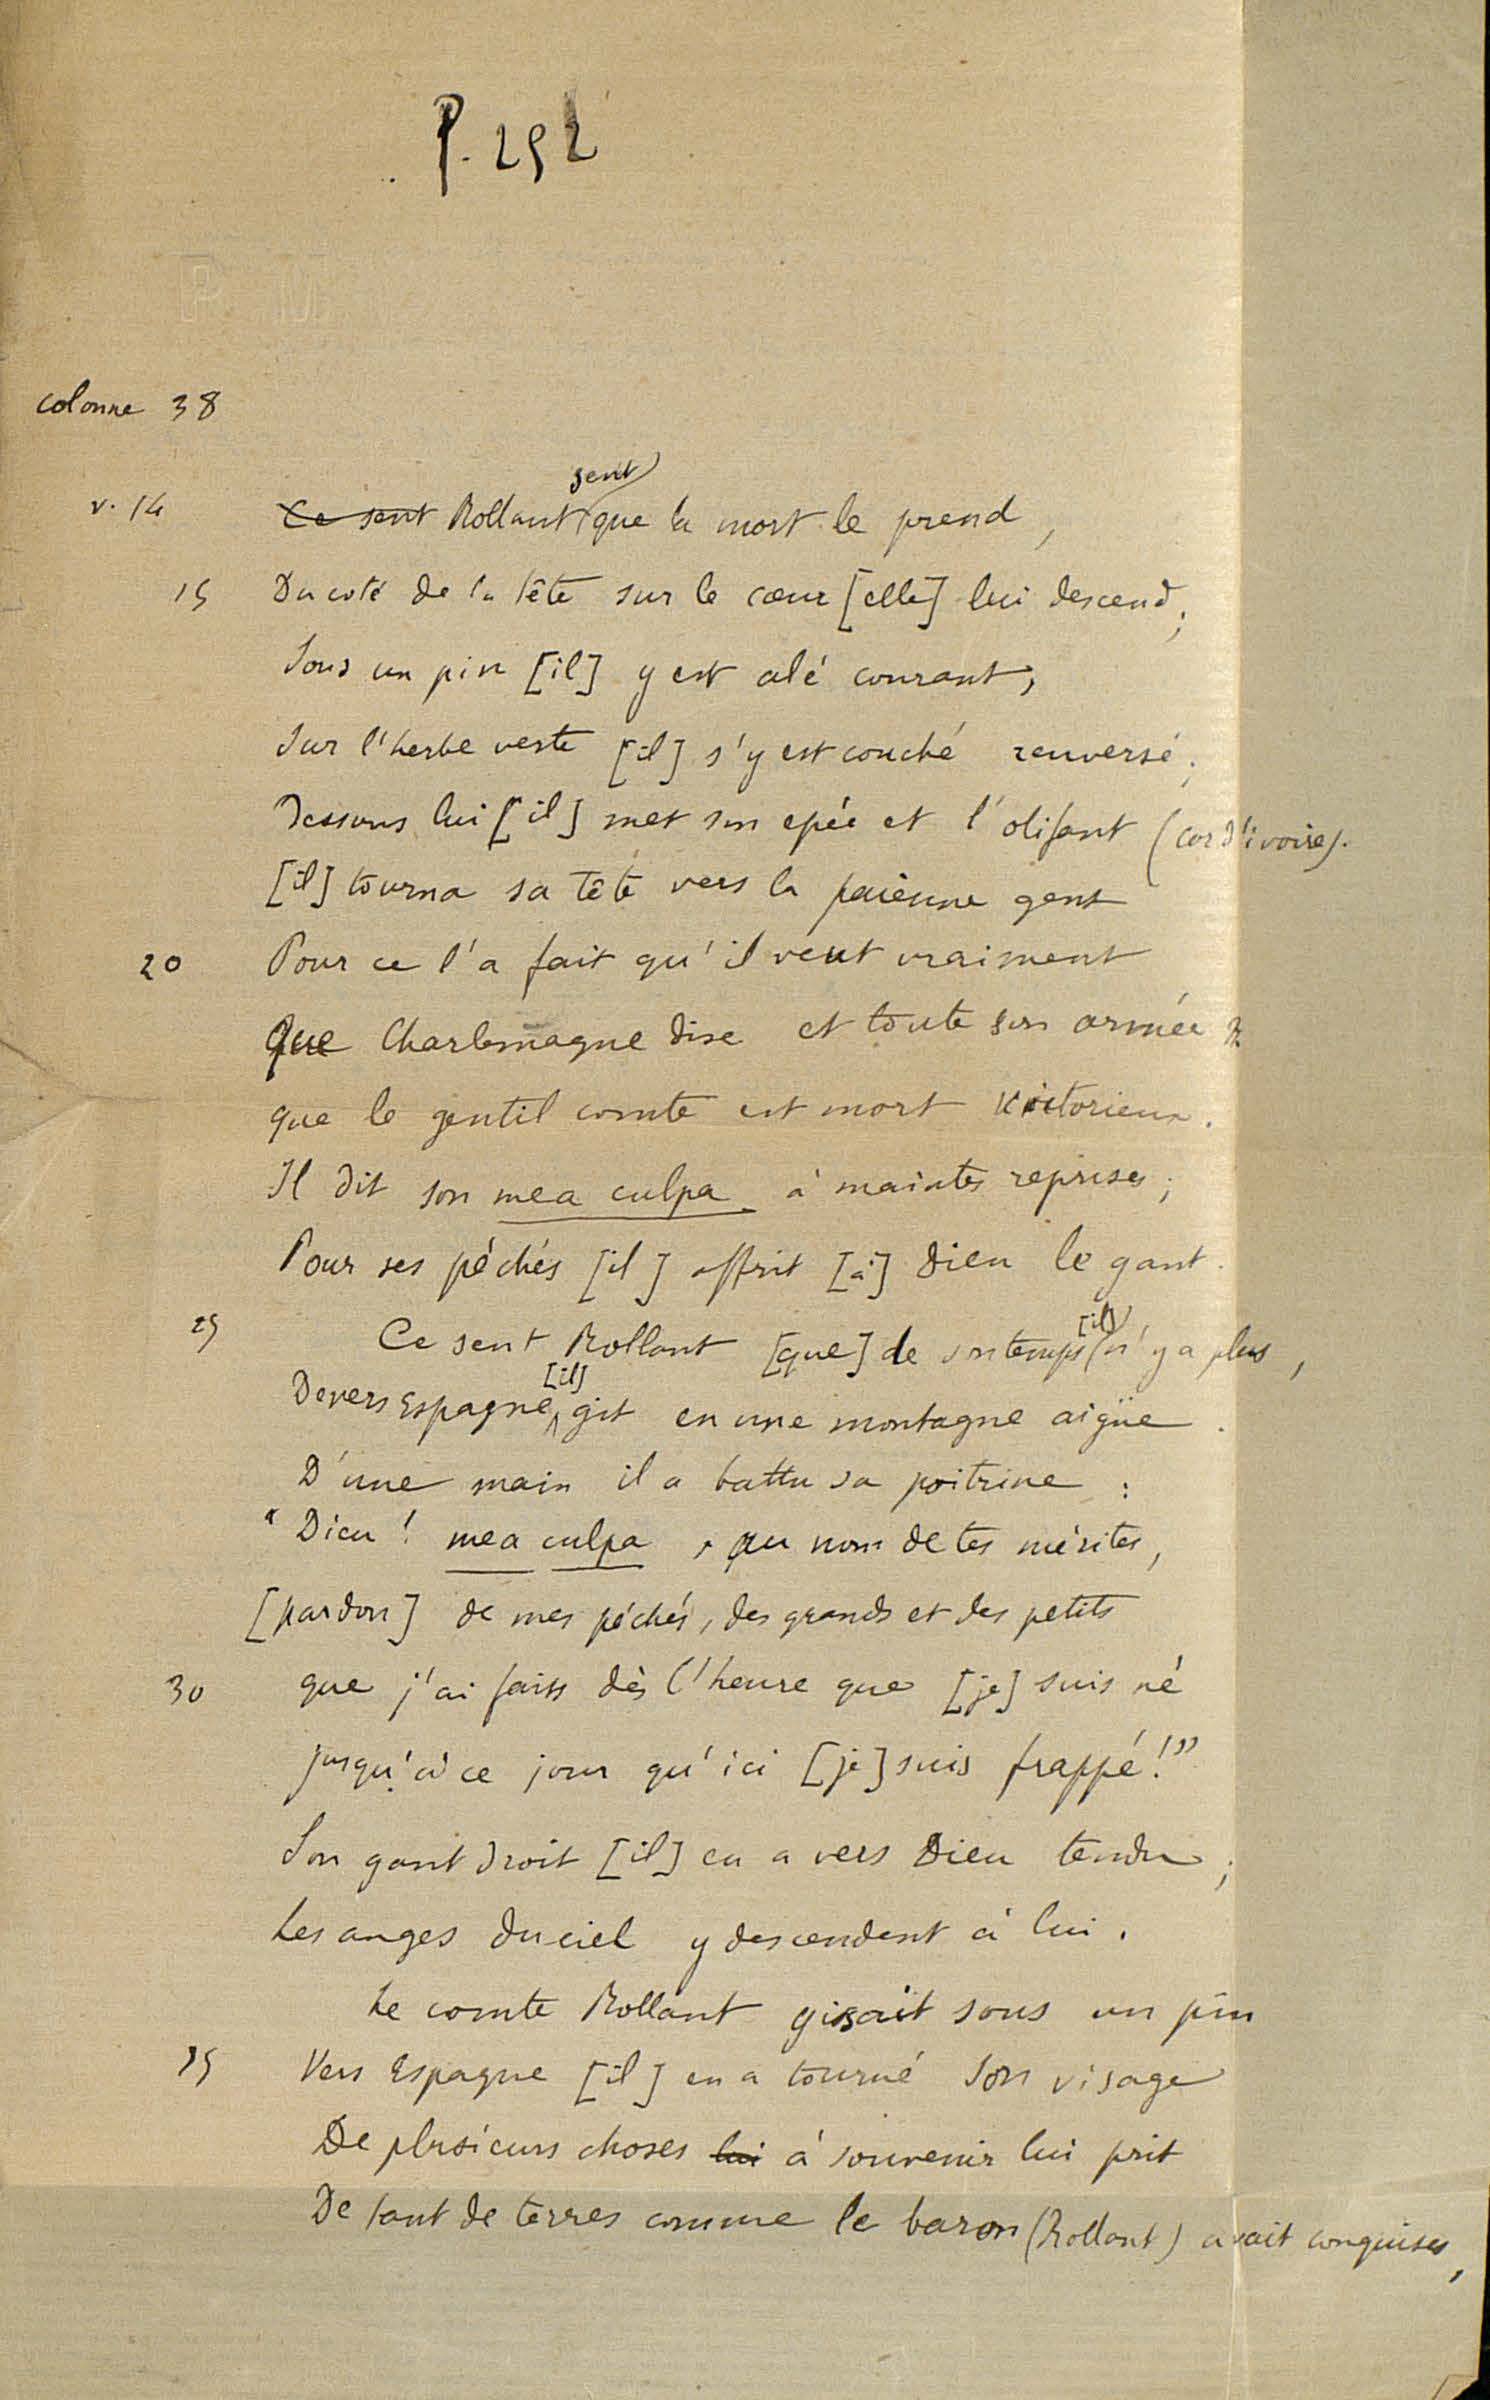 P. 252
colonne 38
sent
v. 14 Ce sent Rollant que la mort le prend,
15 Du coté de la tête sur le cœur [elle] lui descend;
Sous un pin [il] y est alé courant,
Sur l'herbe verte [il] s'y est couché renversé;
Dessous lui [il] met son epée et l'olifant (cor d'ivoire).
[il] tourna sa tête vers la païenne gent
20 Pour ce l'a fait qu'il veut vraiment
Que Charlemagne dise et toute son armée
que le gentil comte est mort victorieux.
Il dit son mea culpa à maintes reprises;
Pour ses péchés [il] offrit [à] Dieu le gant.
[il]
25 Ce sent Rollant [que] de son temps n'y a plus,
[il]
Devers Espagne git en une montagne aigüe.
D'une main il a battu sa poitrine :
"Dieu! mea culpa, au nom de tes mérites,
[pardon] de mes péchés, des grands et des petits
30 que j'ai faits dès l'heure que [je] suis né
jusqu'à ce jour qu'ici [je] suis frappé!"
Son gant droit [il] en a vers Dieu tendu;
Les anges du ciel y descendent à lui.
Le comte Rollant gisait sous un pin
35 Vers Espagne [il] en a tourné son visage
De plusieurs choses lui à souvenir lui prit
De tant de terres comme le baron (Rollant) avait conquises,